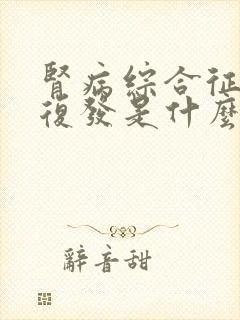 腎病綜合征
復發是什麼
辭音甜